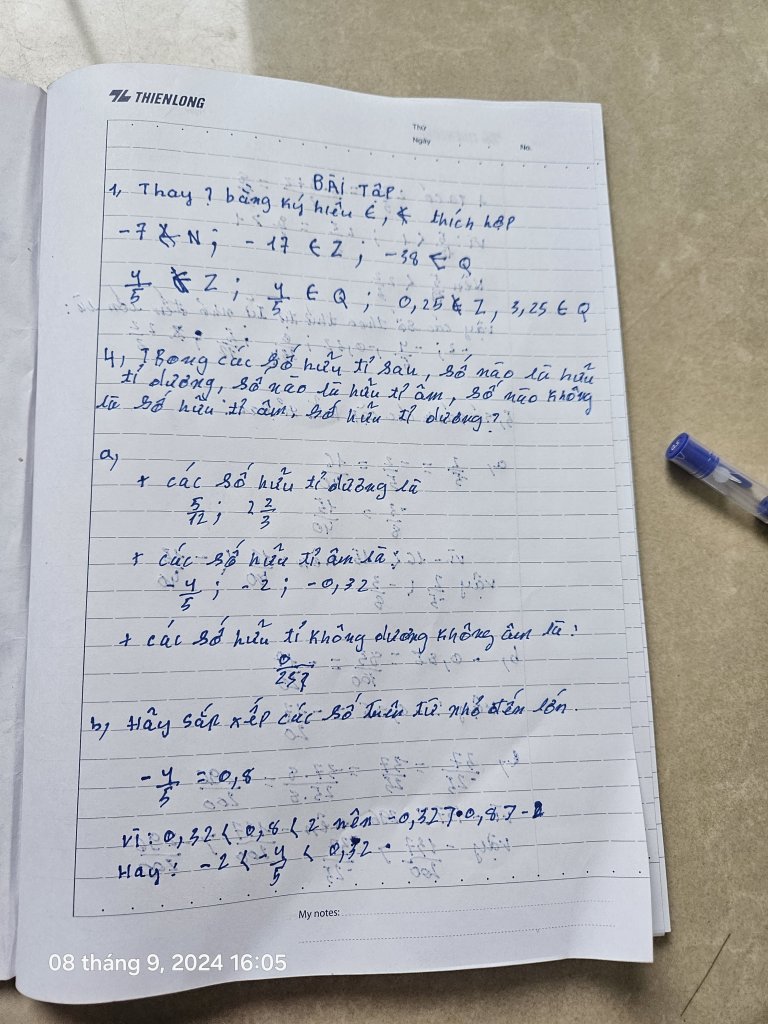 THIENLONG
Thứ
Ngày
No.
BÀI TẬP
1, Thay ? bằng ký hiệu ∈, ∉ thích hợp
-7 ∉ N ; -17 ∈ Z ; -38 ∈ Q
4/5 ∉ Z ; 4/5 ∈ Q ; 0,25 ∉ Z, 3,25 ∈ Q
4, Trong các số hữu tỉ sau, số nào là hữu
tỉ dương, số nào là hữu tỉ âm, số nào không
là số hữu tỉ âm, số hữu tỉ dương?
a,
+ các số hữu tỉ dương là
5/12 ; 2 2/3
+ các số hữu tỉ âm là:
-4/5 ; -2 ; -0,32
+ các số hữu tỉ không dương không âm là:
0/257
b, Hãy sắp xếp các số trên từ nhỏ đến lớn.
-4/5 = 0,8
Vì: 0,32 < 0,8 < 2 nên -0,32 > 0,8 > -2
Hay: -2 < -4/5 < 0,32
My notes:
08 tháng 9, 2024 16:05